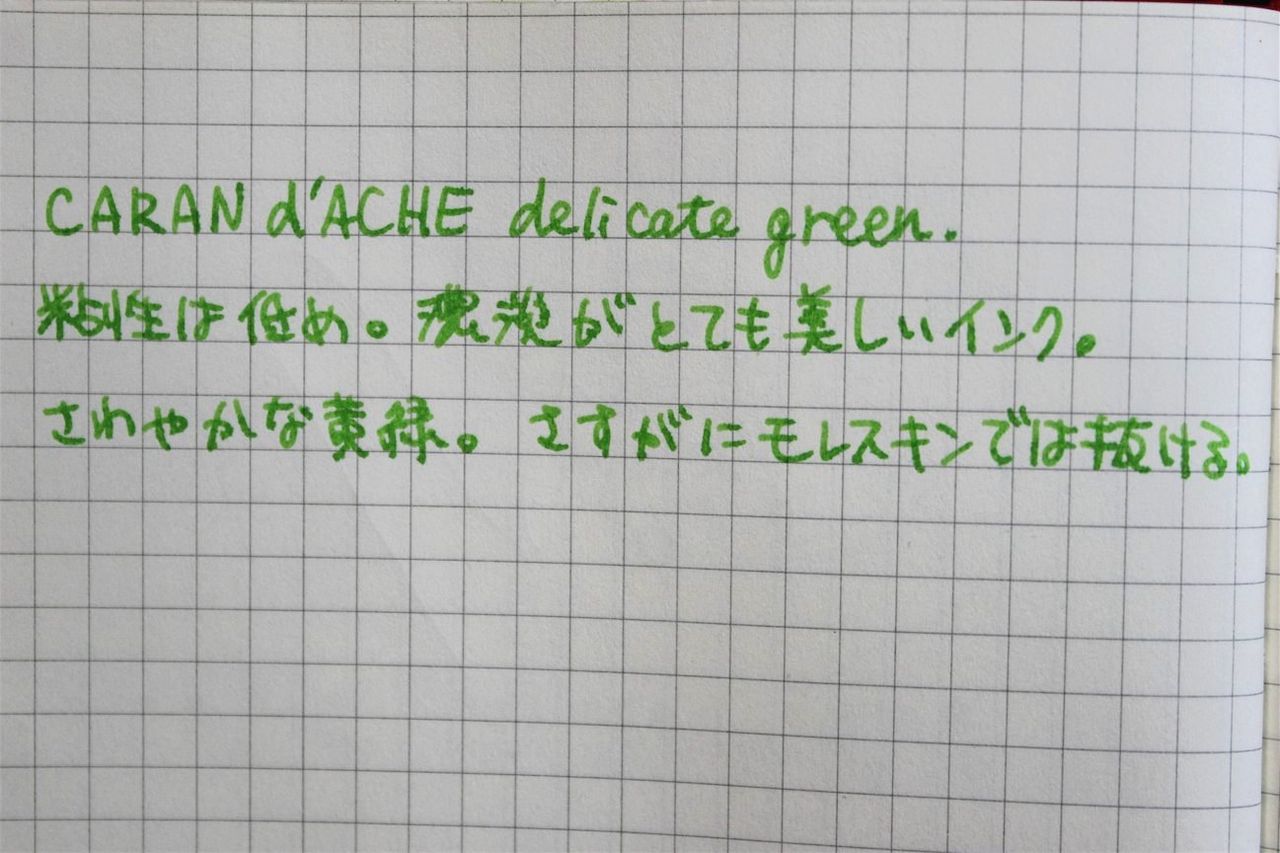 CARAN d'ACHE delicate green.
粘性は低め。濃淡がとても美しいインク。
さわやかな黄緑。 さすがにモレスキンでは抜ける。